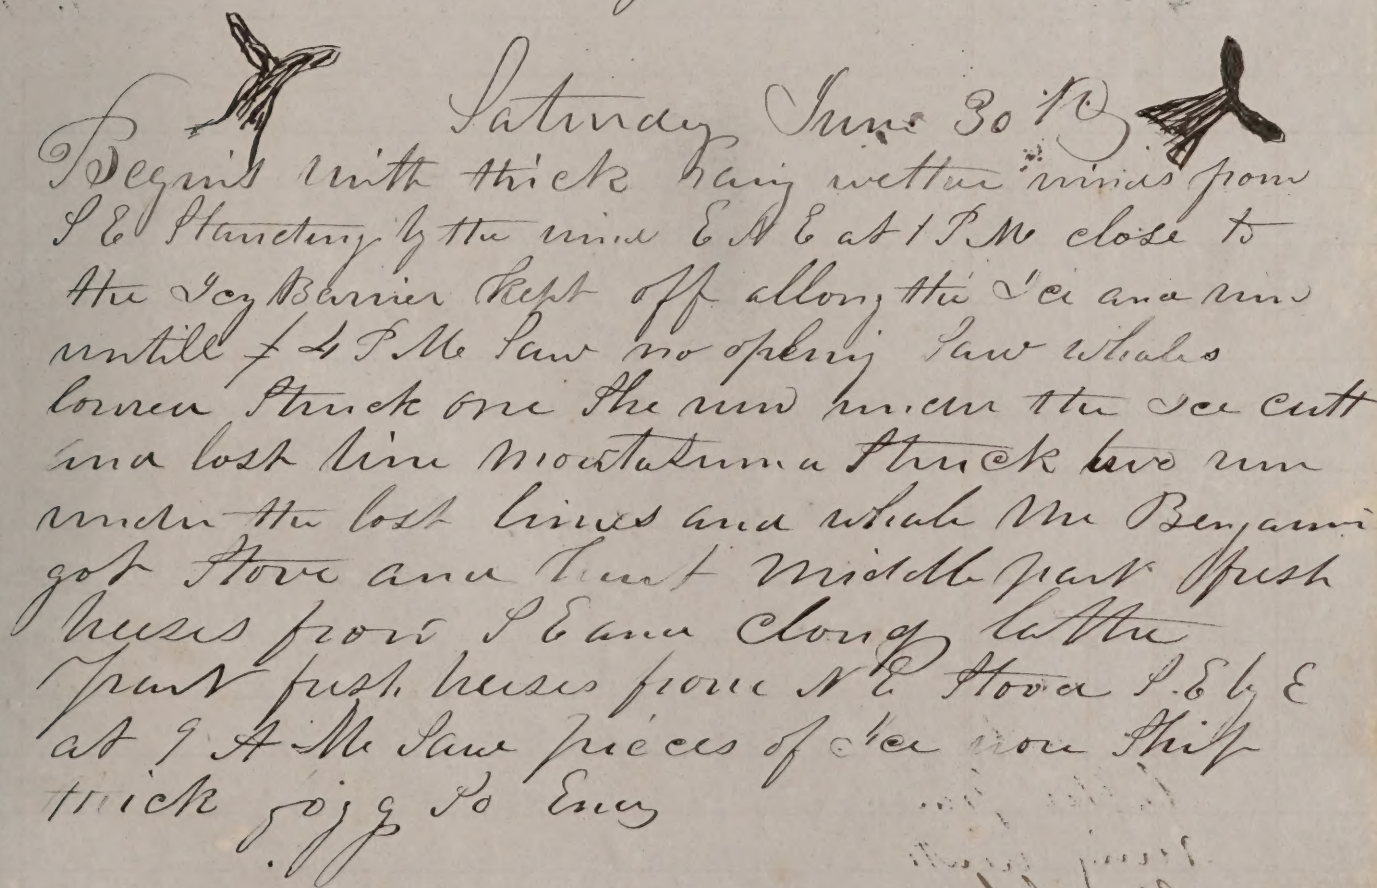 Saturday June 30 th
Begins with thick rainy wether winds from
S E Standing by the wind E N E at 1 P M close to
the Icy Barrier Kept off allong the Ice and run
untill 4 P M Saw no opening Saw whales
lowred Struck one She run under the Ice cutt
and lost line Moctatuma Struck two run
under the lost lines and whale the Benjamin
got Stove and Middle part fresh
breeses from S E and Cloudy latter
part fresh breeses from N E Stood S.E by E
at 9 A M Saw pieces of Ice Ship
thick fogg So Ends